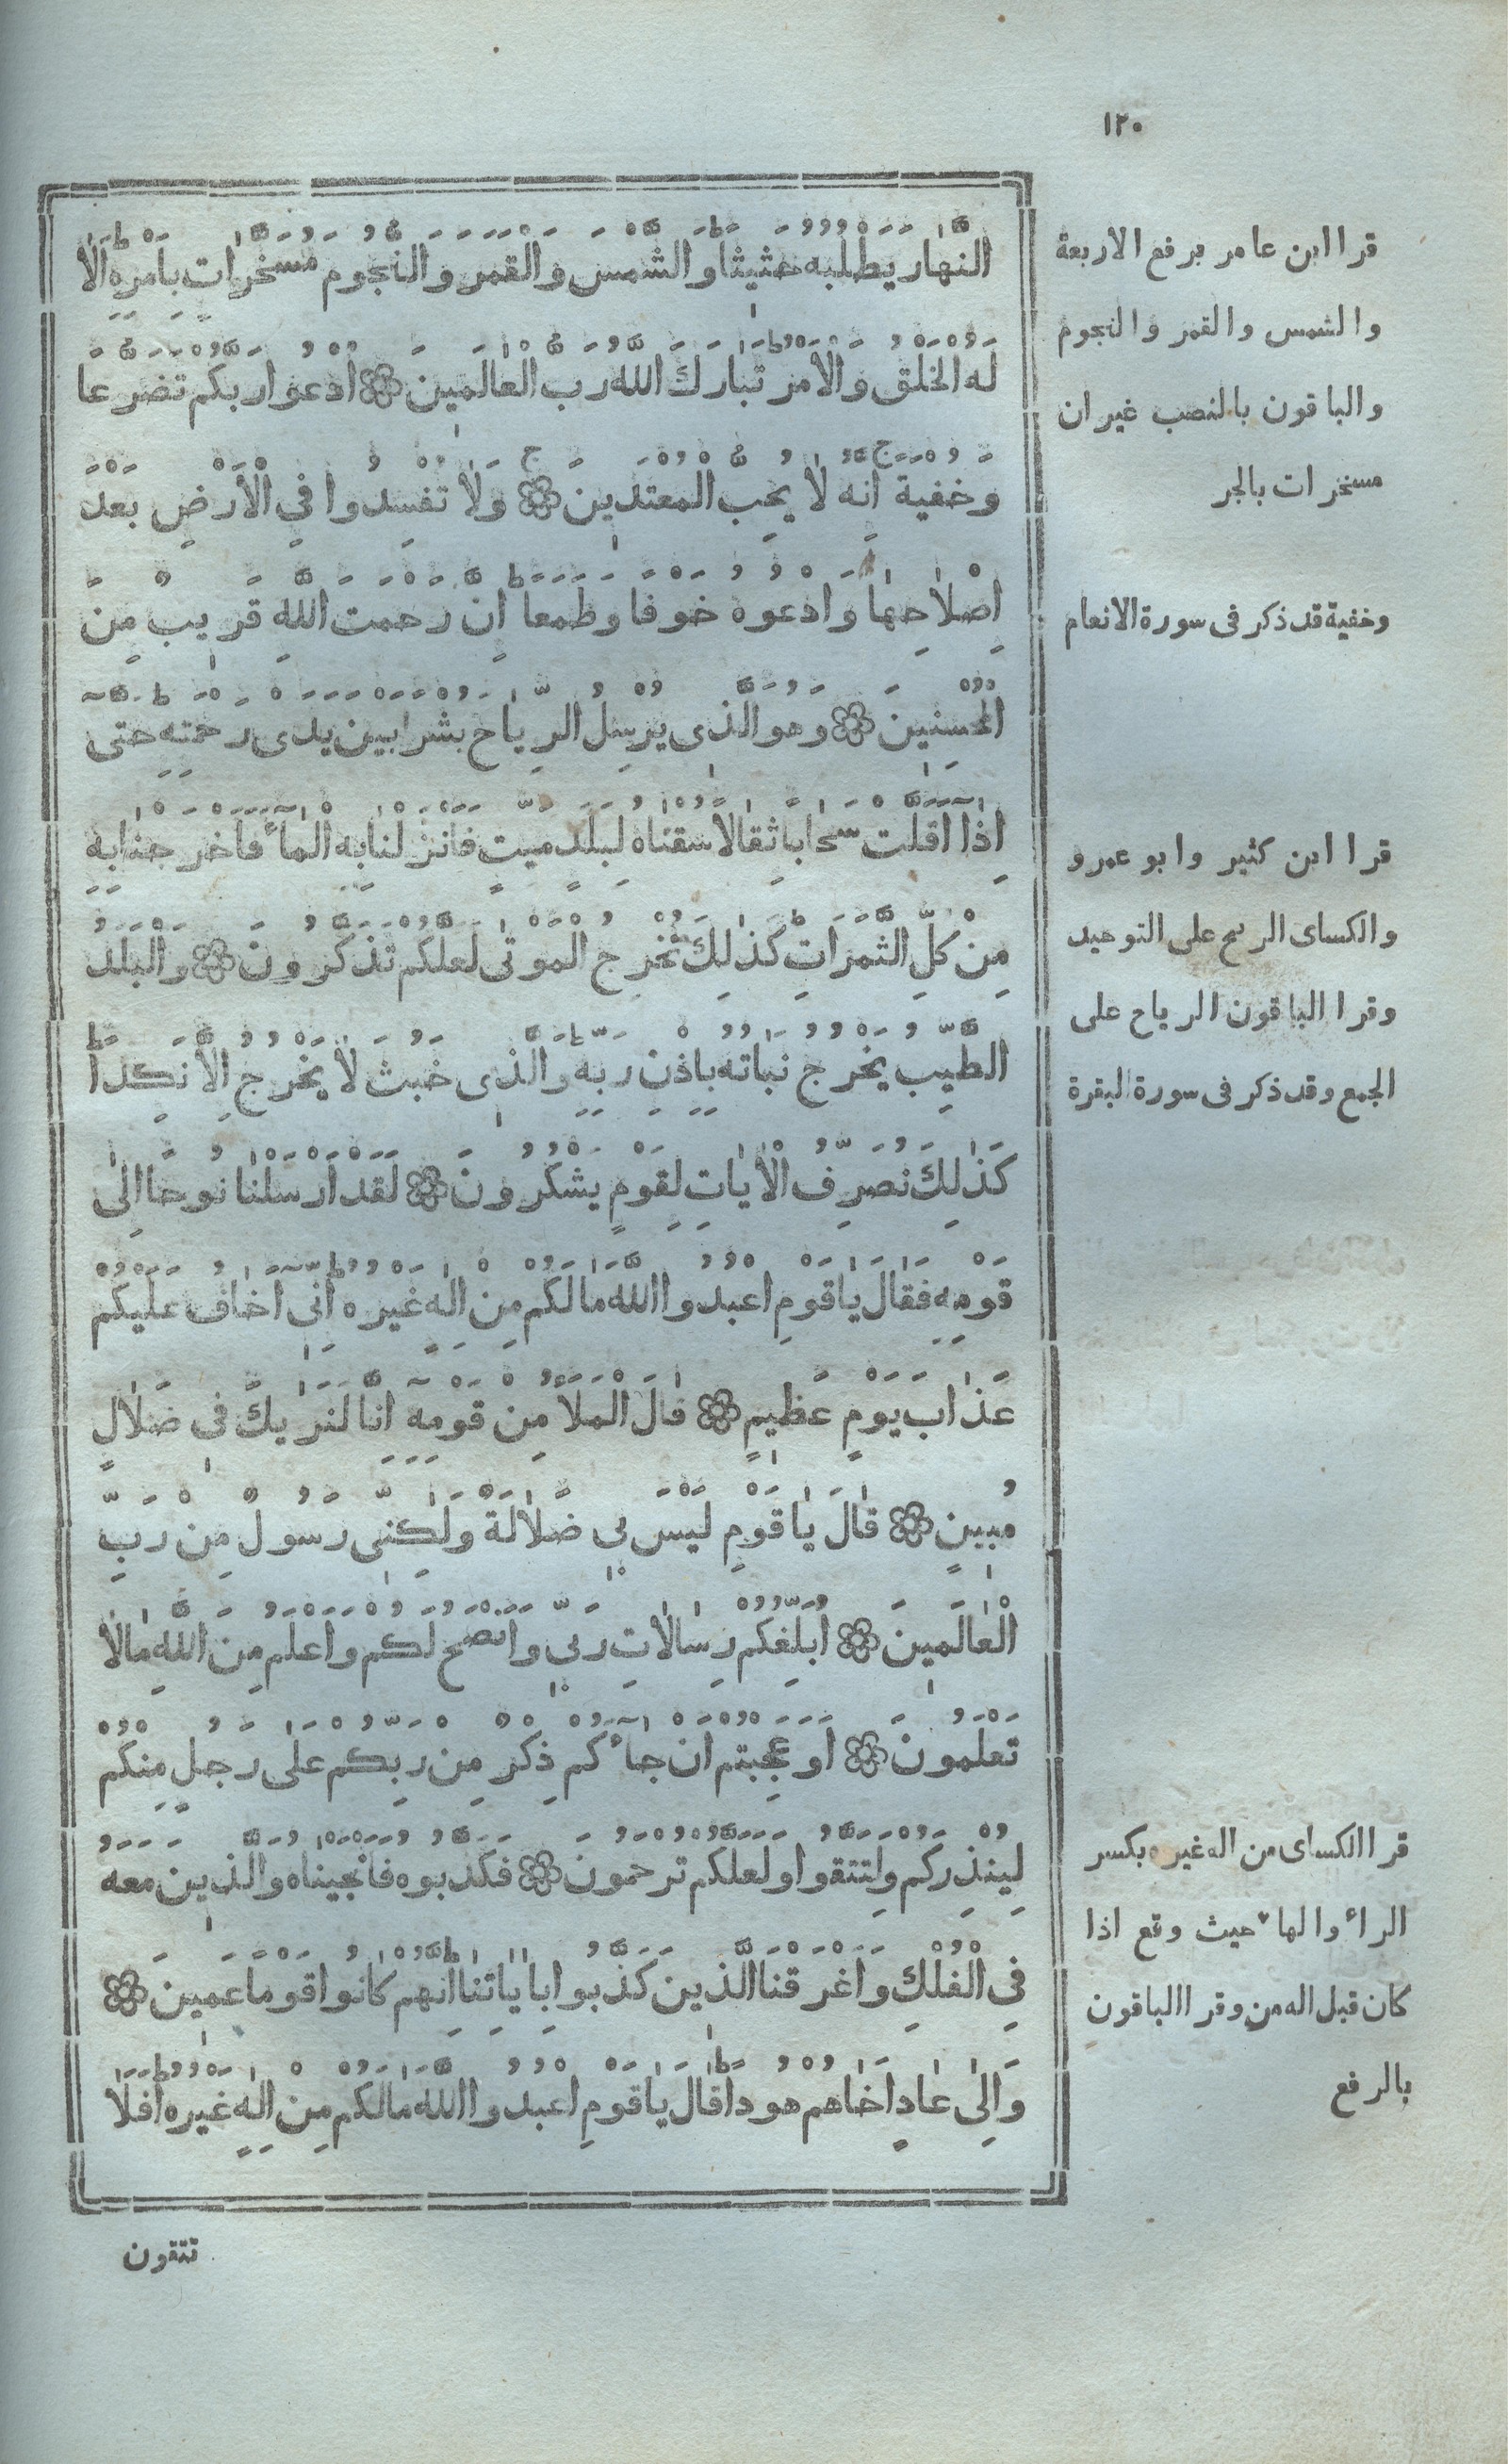 ١٢٠
النَّهَارَ يَطْلُبُهُ حَثِيثًا وَالشَّمْسَ وَالْقَمَرَ وَالنُّجُومَ مُسَخَّرَاتٍ بِاَمْرِهِ اَلَا
لَهُ الْخَلْقُ وَالْاَمْرُ تَبَارَكَ اللَّهُ رَبُّ الْعَالَمِينَ ۞ اُدْعُوا رَبَّكُمْ تَضَرُّعًا
وَخُفْيَةً اِنَّهُ لَا يُحِبُّ الْمُعْتَدِينَ ۞ وَلَا تُفْسِدُوا فِي الْاَرْضِ بَعْدَ
اِصْلَاحِهَا وَادْعُوهُ خَوْفًا وَطَمَعًا اِنَّ رَحْمَتَ اللَّهِ قَرِيبٌ مِنَ
الْمُحْسِنِينَ ۞ وَهُوَ الَّذِى يُرْسِلُ الرِّيَاحَ بُشْرًا بَيْنَ يَدَىْ رَحْمَتِهِ حَتَّىٓ
اِذَآ اَقَلَّتْ سَحَابًا ثِقَالًا سُقْنَاهُ لِبَلَدٍ مَيِّتٍ فَاَنْزَلْنَا بِهِ الْمَآءَ فَاَخْرَجْنَا بِهِ
مِنْ كُلِّ الثَّمَرَاتِ كَذٰلِكَ نُخْرِجُ الْمَوْتٰى لَعَلَّكُمْ تَذَكَّرُونَ ۞ وَالْبَلَدُ
الطَّيِّبُ يَخْرُجُ نَبَاتُهُ بِاِذْنِ رَبِّهِ وَالَّذِى خَبُثَ لَا يَخْرُجُ اِلَّا نَكِدًا
كَذٰلِكَ نُصَرِّفُ الْاٰيَاتِ لِقَوْمٍ يَشْكُرُونَ ۞ لَقَدْ اَرْسَلْنَا نُوحًا اِلٰى
قَوْمِهِ فَقَالَ يَا قَوْمِ اعْبُدُوا اللَّهَ مَا لَكُمْ مِنْ اِلٰهٍ غَيْرُهُ اِنِّىٓ اَخَافُ عَلَيْكُمْ
عَذَابَ يَوْمٍ عَظِيمٍ ۞ قَالَ الْمَلَاُ مِنْ قَوْمِهِٓ اِنَّا لَنَرٰيكَ فِى ضَلَالٍ
مُبِينٍ ۞ قَالَ يَا قَوْمِ لَيْسَ بِى ضَلَالَةٌ وَلٰكِنِّى رَسُولٌ مِنْ رَبِّ
الْعَالَمِينَ ۞ اُبَلِّغُكُمْ رِسَالَاتِ رَبِّى وَاَنْصَحُ لَكُمْ وَاَعْلَمُ مِنَ اللَّهِ مَا لَا
تَعْلَمُونَ ۞ اَوَعَجِبْتُمْ اَنْ جَآءَكُمْ ذِكْرٌ مِنْ رَبِّكُمْ عَلٰى رَجُلٍ مِنْكُمْ
لِيُنْذِرَكُمْ وَلِتَتَّقُوا وَلَعَلَّكُمْ تُرْحَمُونَ ۞ فَكَذَّبُوهُ فَاَنْجَيْنَاهُ وَالَّذِينَ مَعَهُ
فِى الْفُلْكِ وَاَغْرَقْنَا الَّذِينَ كَذَّبُوا بِاٰيَاتِنَا اِنَّهُمْ كَانُوا قَوْمًا عَمِينَ ۞
وَاِلٰى عَادٍ اَخَاهُمْ هُودًا قَالَ يَا قَوْمِ اعْبُدُوا اللَّهَ مَا لَكُمْ مِنْ اِلٰهٍ غَيْرُهُ اَفَلَا
تتقون
قرا ابن عامر برفع الاربعة
والشمس والقمر والنجوم
والباقون بالنصب غير ان
مسخرات بالجر
وخفية قد ذكر فى سورة الانعام
قرا ابن كثير وابو عمرو
والكساى الريح على التوحيد
وقرا الباقون الرياح على
الجمع وقد ذكر فى سورة البقرة
قرا الكساى من اله غيره بكسر
الراء والهاء حيث وقع اذا
كان قبل اله من وقرا الباقون
بالرفع